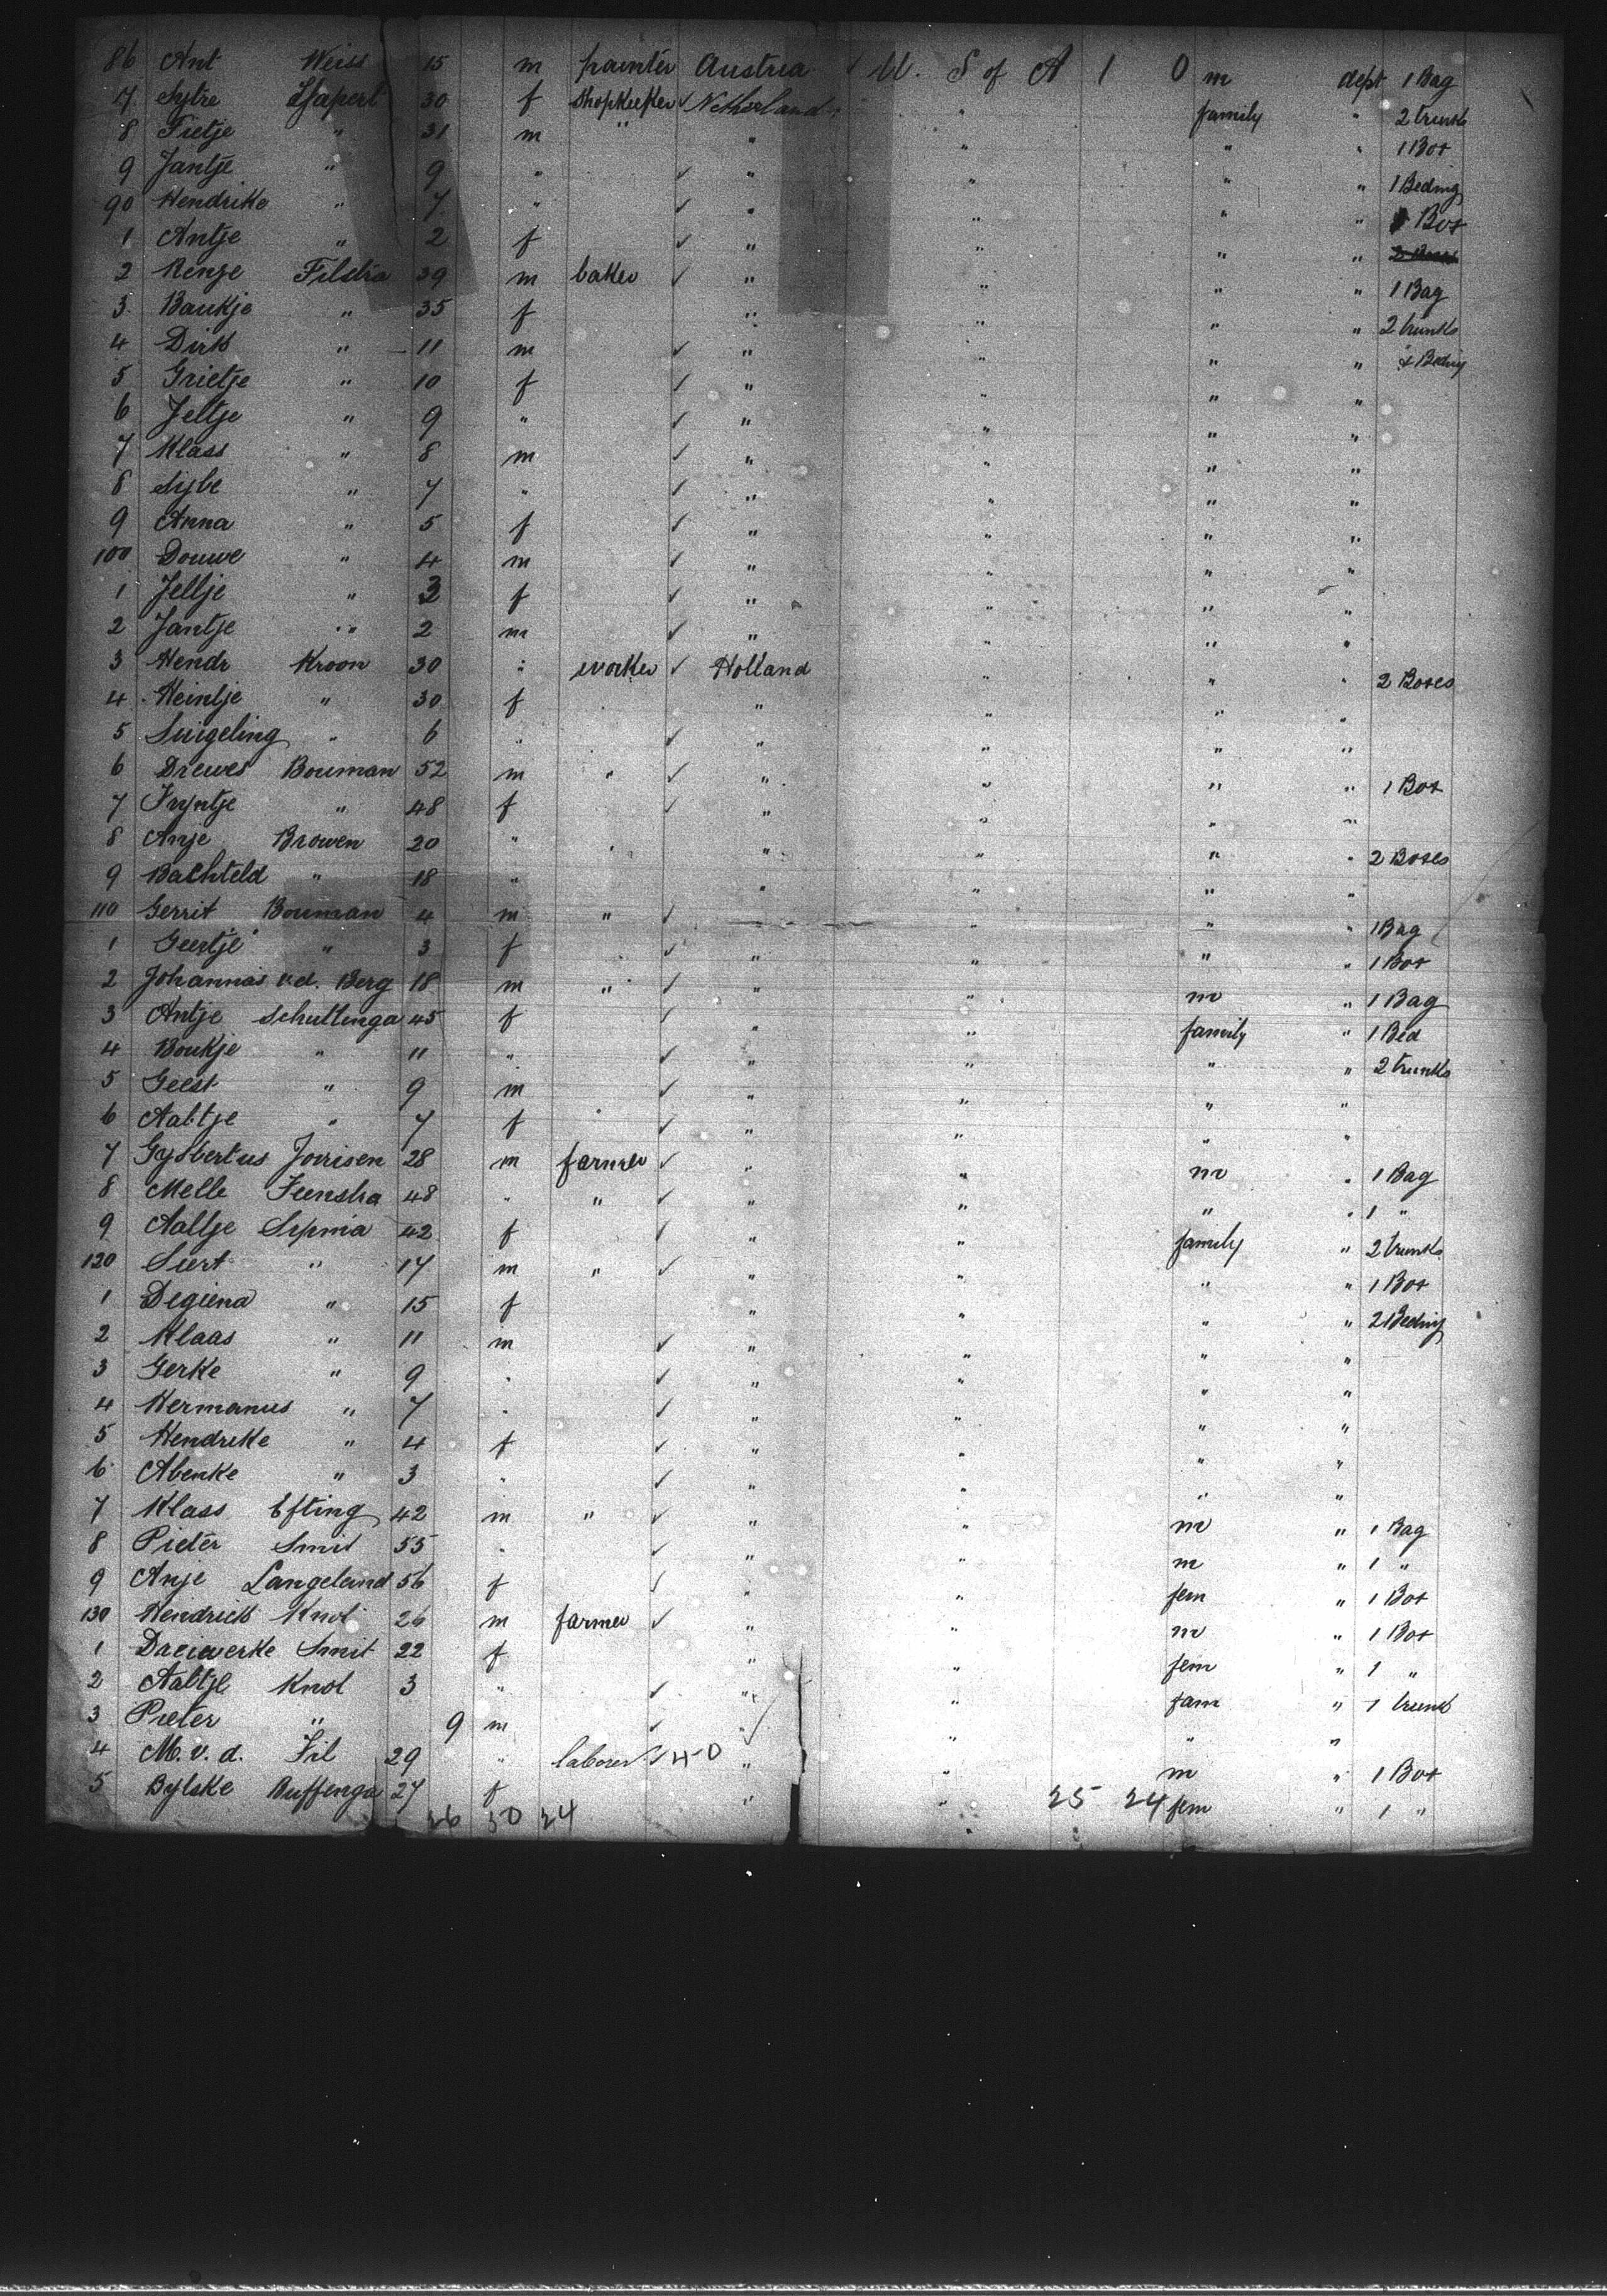 86 Ant Weiss 15 m painter Austria U. S of A 1 0 m dept 1 Bag
7 Sytre 30 f Shopkeeker ✓ Netherland " family " 2 trunks
8 Fietje " 31 m " " " " " 1 Box
9 Jantje " 9 " ✓ " " " " 1 Beding
90 Hendrike " 7 " ✓ " " " " 1 Box
1 Antje " 2 f ✓ " " " "
2 Renje Filstra 39 m baker ✓ " " " " 1 Bag
3 Baukje " 35 f " " " " 2 trunks
4 Dirk " 11 m ✓ " " " " Beding
5 Grietje " 10 f ✓ " " " "
6 Jeltje " 9 " ✓ " " " "
7 Klass " 8 m ✓ " " " "
8 Sijbe " 7 " ✓ " " " "
9 Anna " 5 f ✓ " " " "
100 Douwe " 4 m ✓ " " " "
1 Jeltje " 3 f ✓ " " " "
2 Jantje " 2 m ✓ " " " "
3 Hendr Kroon 30 " worker ✓ Holland " " " 2 Boxes
4 Heintje " 30 f " " " "
5 Suigeling " 6 " ✓ " " " "
6 Drewes Bouman 52 m " ✓ " " " " 1 Box
7 Tryntje " 48 f ✓ " " " "
8 Anje Browen 20 " " " " " " 2 Boxes
9 Bachteld " 18 " " " " "
110 Gerrit Bouman 4 m " ✓ " " " 1 Bag
1 Geertje " 3 f ✓ " " " " 1 Box
2 Johannas v.d. Berg 18 m " ✓ " " m " 1 Bag
3 Antje Schuttinga 45 f ✓ " " family " 1 Bed
4 Boukje " 11 " ✓ " " " " 2 trunks
5 Geest " 9 m ✓ " " " "
6 Aaltje " 7 f ✓ " " " "
7 Gysbertus Jorrisen 28 m farmer ✓ " " m " 1 Bag
8 Melle Feenstra 48 " " ✓ " " " " 1 "
9 Aaltje Sipma 42 f ✓ " " family " 2 trunks
120 Siert " 17 m " ✓ " " " " 1 Box
1 Degiena " 15 f " " " " 2 Beding
2 Klaas " 11 m ✓ " " " "
3 Gerke " 9 " ✓ " " " "
4 Hermanus " 7 " ✓ " " " "
5 Hendreke " 4 f ✓ " " " "
6 Abenke " 3 " ✓ " " " "
7 Klass Efting 42 m " ✓ " " m " 1 Bag
8 Pieter Smit 55 " ✓ " " m " 1 "
9 Anje Langeland 56 f ✓ " " fem " 1 Box
130 Hendrick Knol 26 m farmer ✓ " " m " 1 Box
1 Smit 22 f " " fem " 1 "
2 Aaltje Knol 3 " ✓ " " fam " 1 trunk
3 Pieter " 9 m ✓ " " " "
4 M. v. d. 29 " laborer ✓ 4-0 " " m " 1 Box
5 Bylske Buffenga 27 f " " 25 24 fem " 1 "
26 50 24